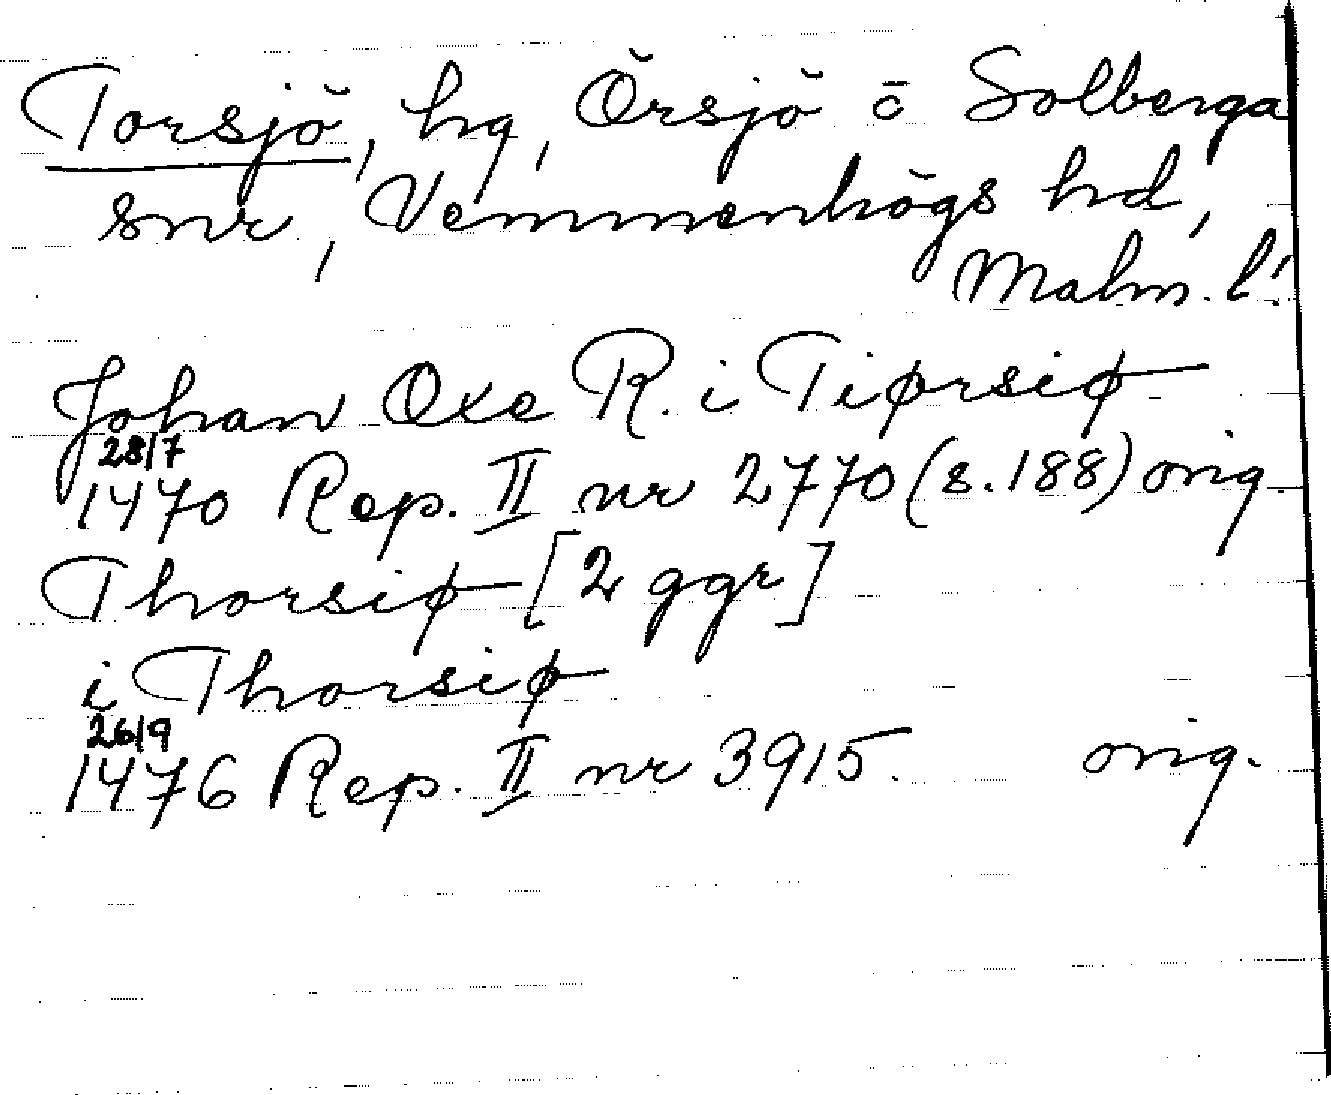 Torsjö, hg, Örsjö o Solberga
snr, Vemmenhögs hd,
Malm. l.
Johan Oxe R. i Tiørsiø
28/7
1470 Rep. II nr 2770 (s. 188) orig
Thorsiø [2 ggr]
i Thorsiø
26/9
1476 Rep. II nr 3915. orig.